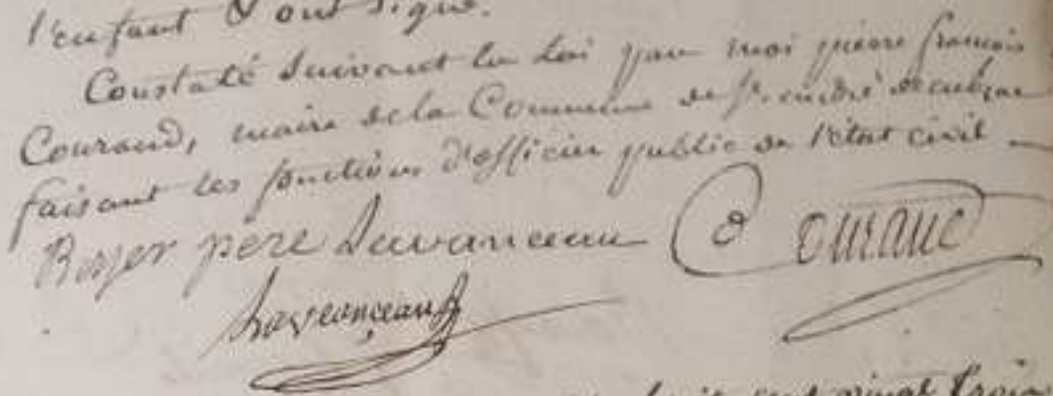 l'enfant & ont signé.
Constaté Suivant la Loi par moi pierre françois
Couraud, maire de la Commune de St. andré de cubzac
faisant les fonctions d'officier public de l'état civil
Boyer pere Lavanceau Couraud
Laveançeau
huit cent vingt trois